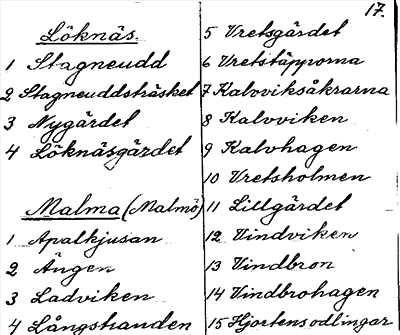 17.
Löknäs.
1 Stagneudd
2 Stagneuddsträsket
3 Nygärdet
4 Löknäsgärdet
Malma (Malmö)
1 Apalkjusan
2 Ängen
3 Ladviken
4 Långstranden
5 Vretsgärdet
6 Vretstäpporna
7 Kalvviksåkrarna
8 Kalvviken
9 Kalvhagen
10 Vretsholmen
11 Lillgärdet
12 Vindviken
13 Vindbron
14 Vindbrohagen
15 Hjortensodlingar